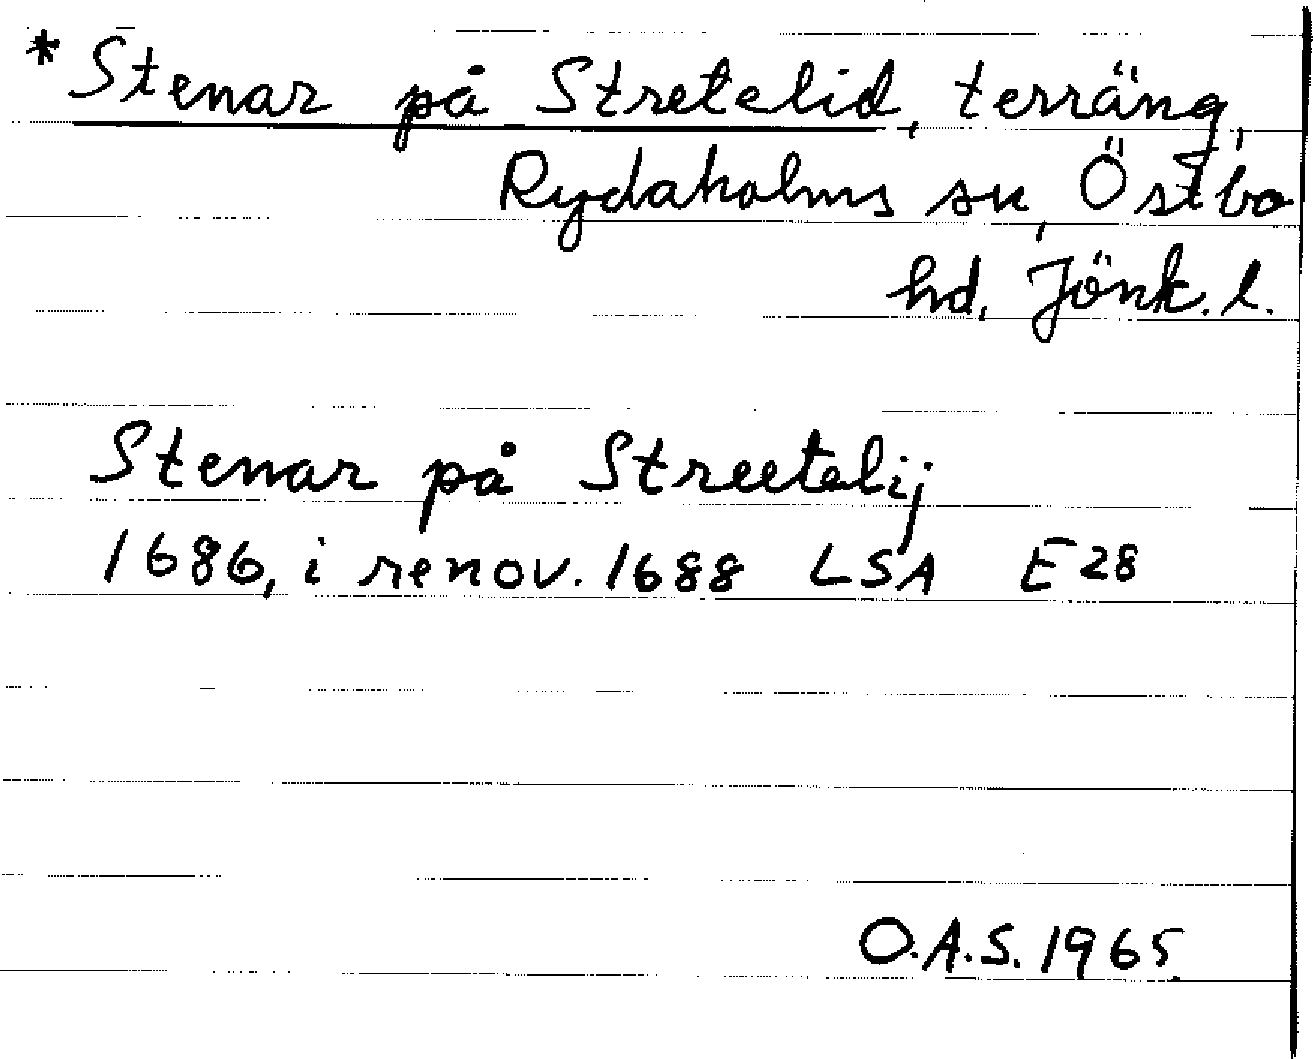 * Stenar på Stretelid, terräng,
Rydaholms sn, Östbo
hd, Jönk. l.
Stenar på Streetelij
1686, i renov. 1688 LSA E28
O.A.S. 1965.